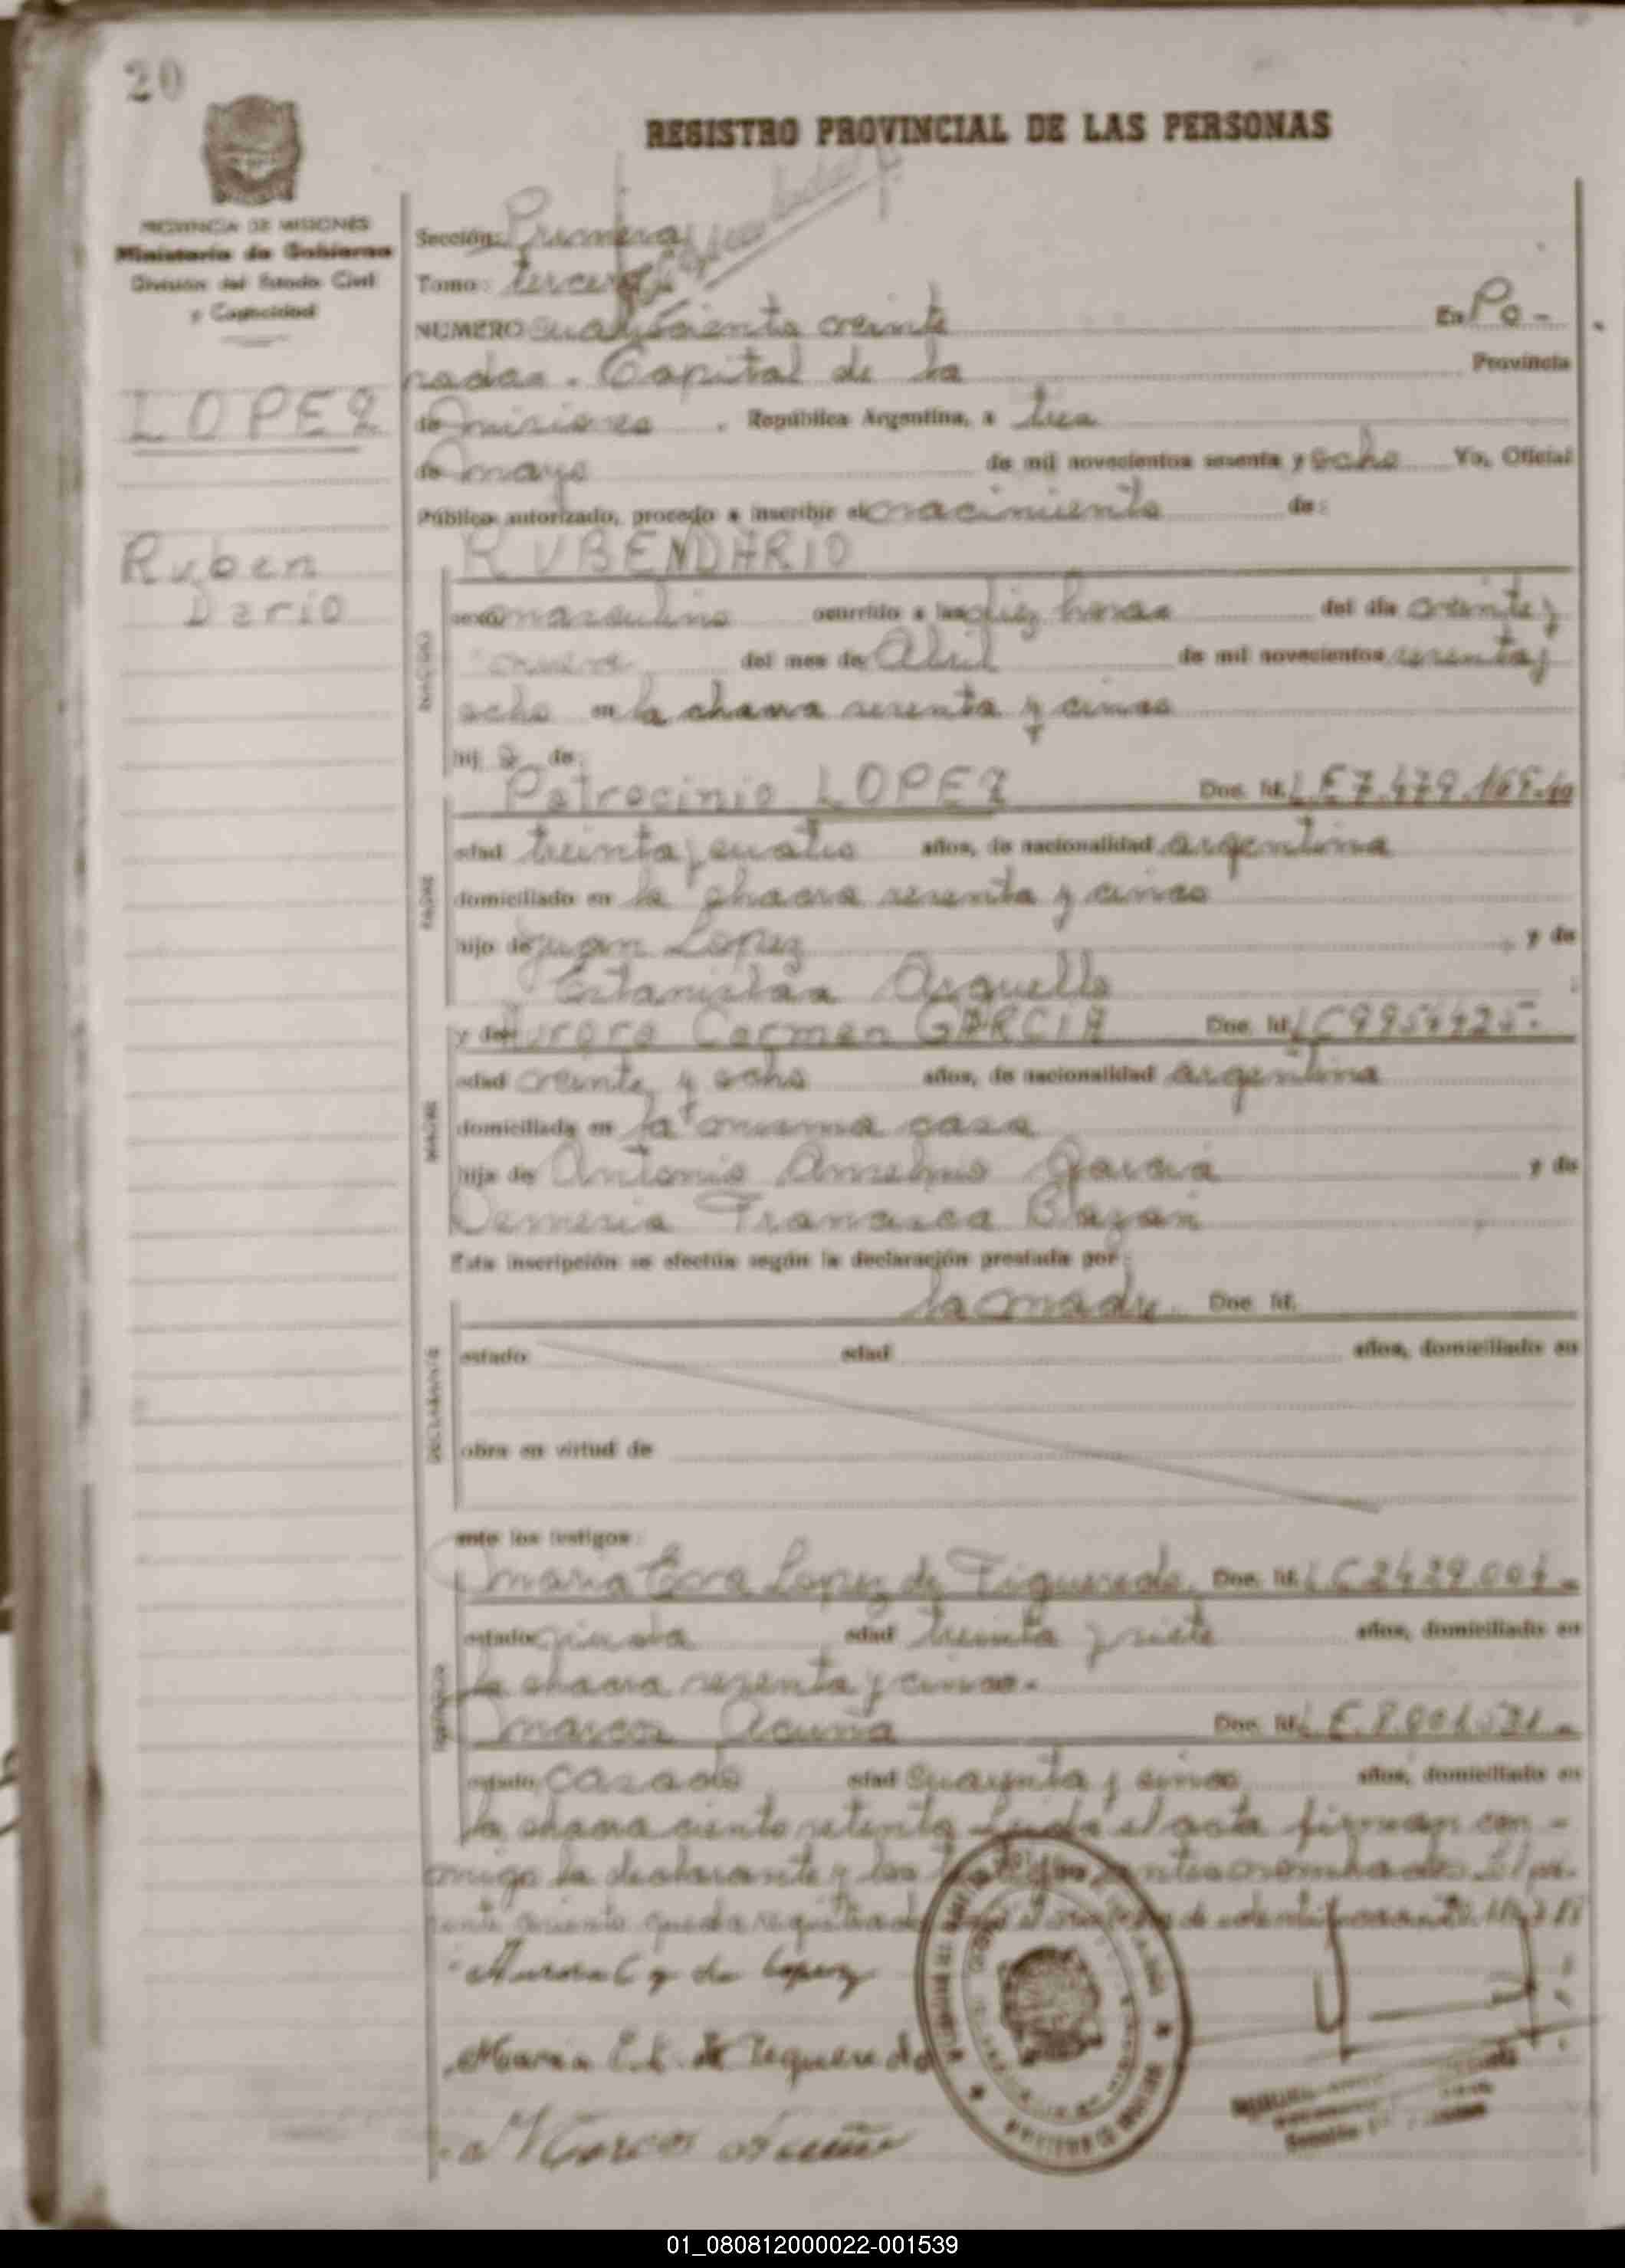 20
REGISTRO PROVINCIAL DE LAS PERSONAS
PROVINCIA DE MISIONES
Ministerio de Gobierno
División del Estado Civil
y Capacidad
Sección: Primera
Tomo: tercero
NUMERO veinte En Po-
sadas. Capital de la Provincia
LOPEZ
de Misiones, República Argentina, a tres
de mayo de mil novecientos sesenta y ocho Yo, Oficial
Público autorizado, procedo a inscribir el nacimiento de:
Ruben
Dario
RUBEN DARIO
NACIDO
sexo masculino ocurrido a las diez horas del día veinte y
nueve del mes de Abril de mil novecientos sesenta y
ocho en la chacra sesenta y cinco
hij o de:
Patrocinio LOPEZ Doc. Id. L E 7.479.169
PADRE
edad treinta y cuatro años, de nacionalidad argentina
domiciliado en la chacra sesenta y cinco
hijo de Juan Lopez y de
Estanislaa Arguello
y de: Aurora Carmen GARCIA Doc. Id. L C 9954425-
MADRE
edad veinte y ocho años, de nacionalidad argentina
domiciliada en la misma casa
hija de Antonio Anselmo Garcia y de
Francisca Bazan
Esta inscripción se efectúa según la declaración prestada por:
la madre Doc. Id.
DECLARANTE
estado edad años, domiciliado en
obra en virtud de
ante los testigos:
Maria Eva Lopez de Figueredo Doc. Id. L C 2429.004-
TESTIGOS
estado viuda edad treinta y siete años, domiciliado en
la chacra sesenta y cinco.
Marcos Acuña Doc. Id. L E. 8.001.531-
estado casado edad cuarenta y cinco años, domiciliado en
la chacra ciento setenta Leida el acta firman con-
migo la declarante y los testigos antes nombrados. El pre-
sente asiento queda registrado de identificación
Aurora C G de Lopez
Maria E. L. de Figueredo
Marcos Acuña
01_080812000022-001539